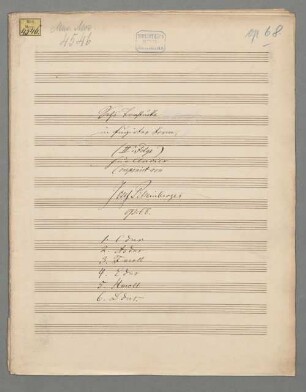 Mus. Mss.
4546
Mus. Mss.
4546
op 68
Sechs Tonstücke
in fugirter Form
für Clavier
componirt von
Jos. Rheinberger
op. 68.
1. C dur
2. As dur
3. F moll
4. E dur
5. H moll
6. D dur